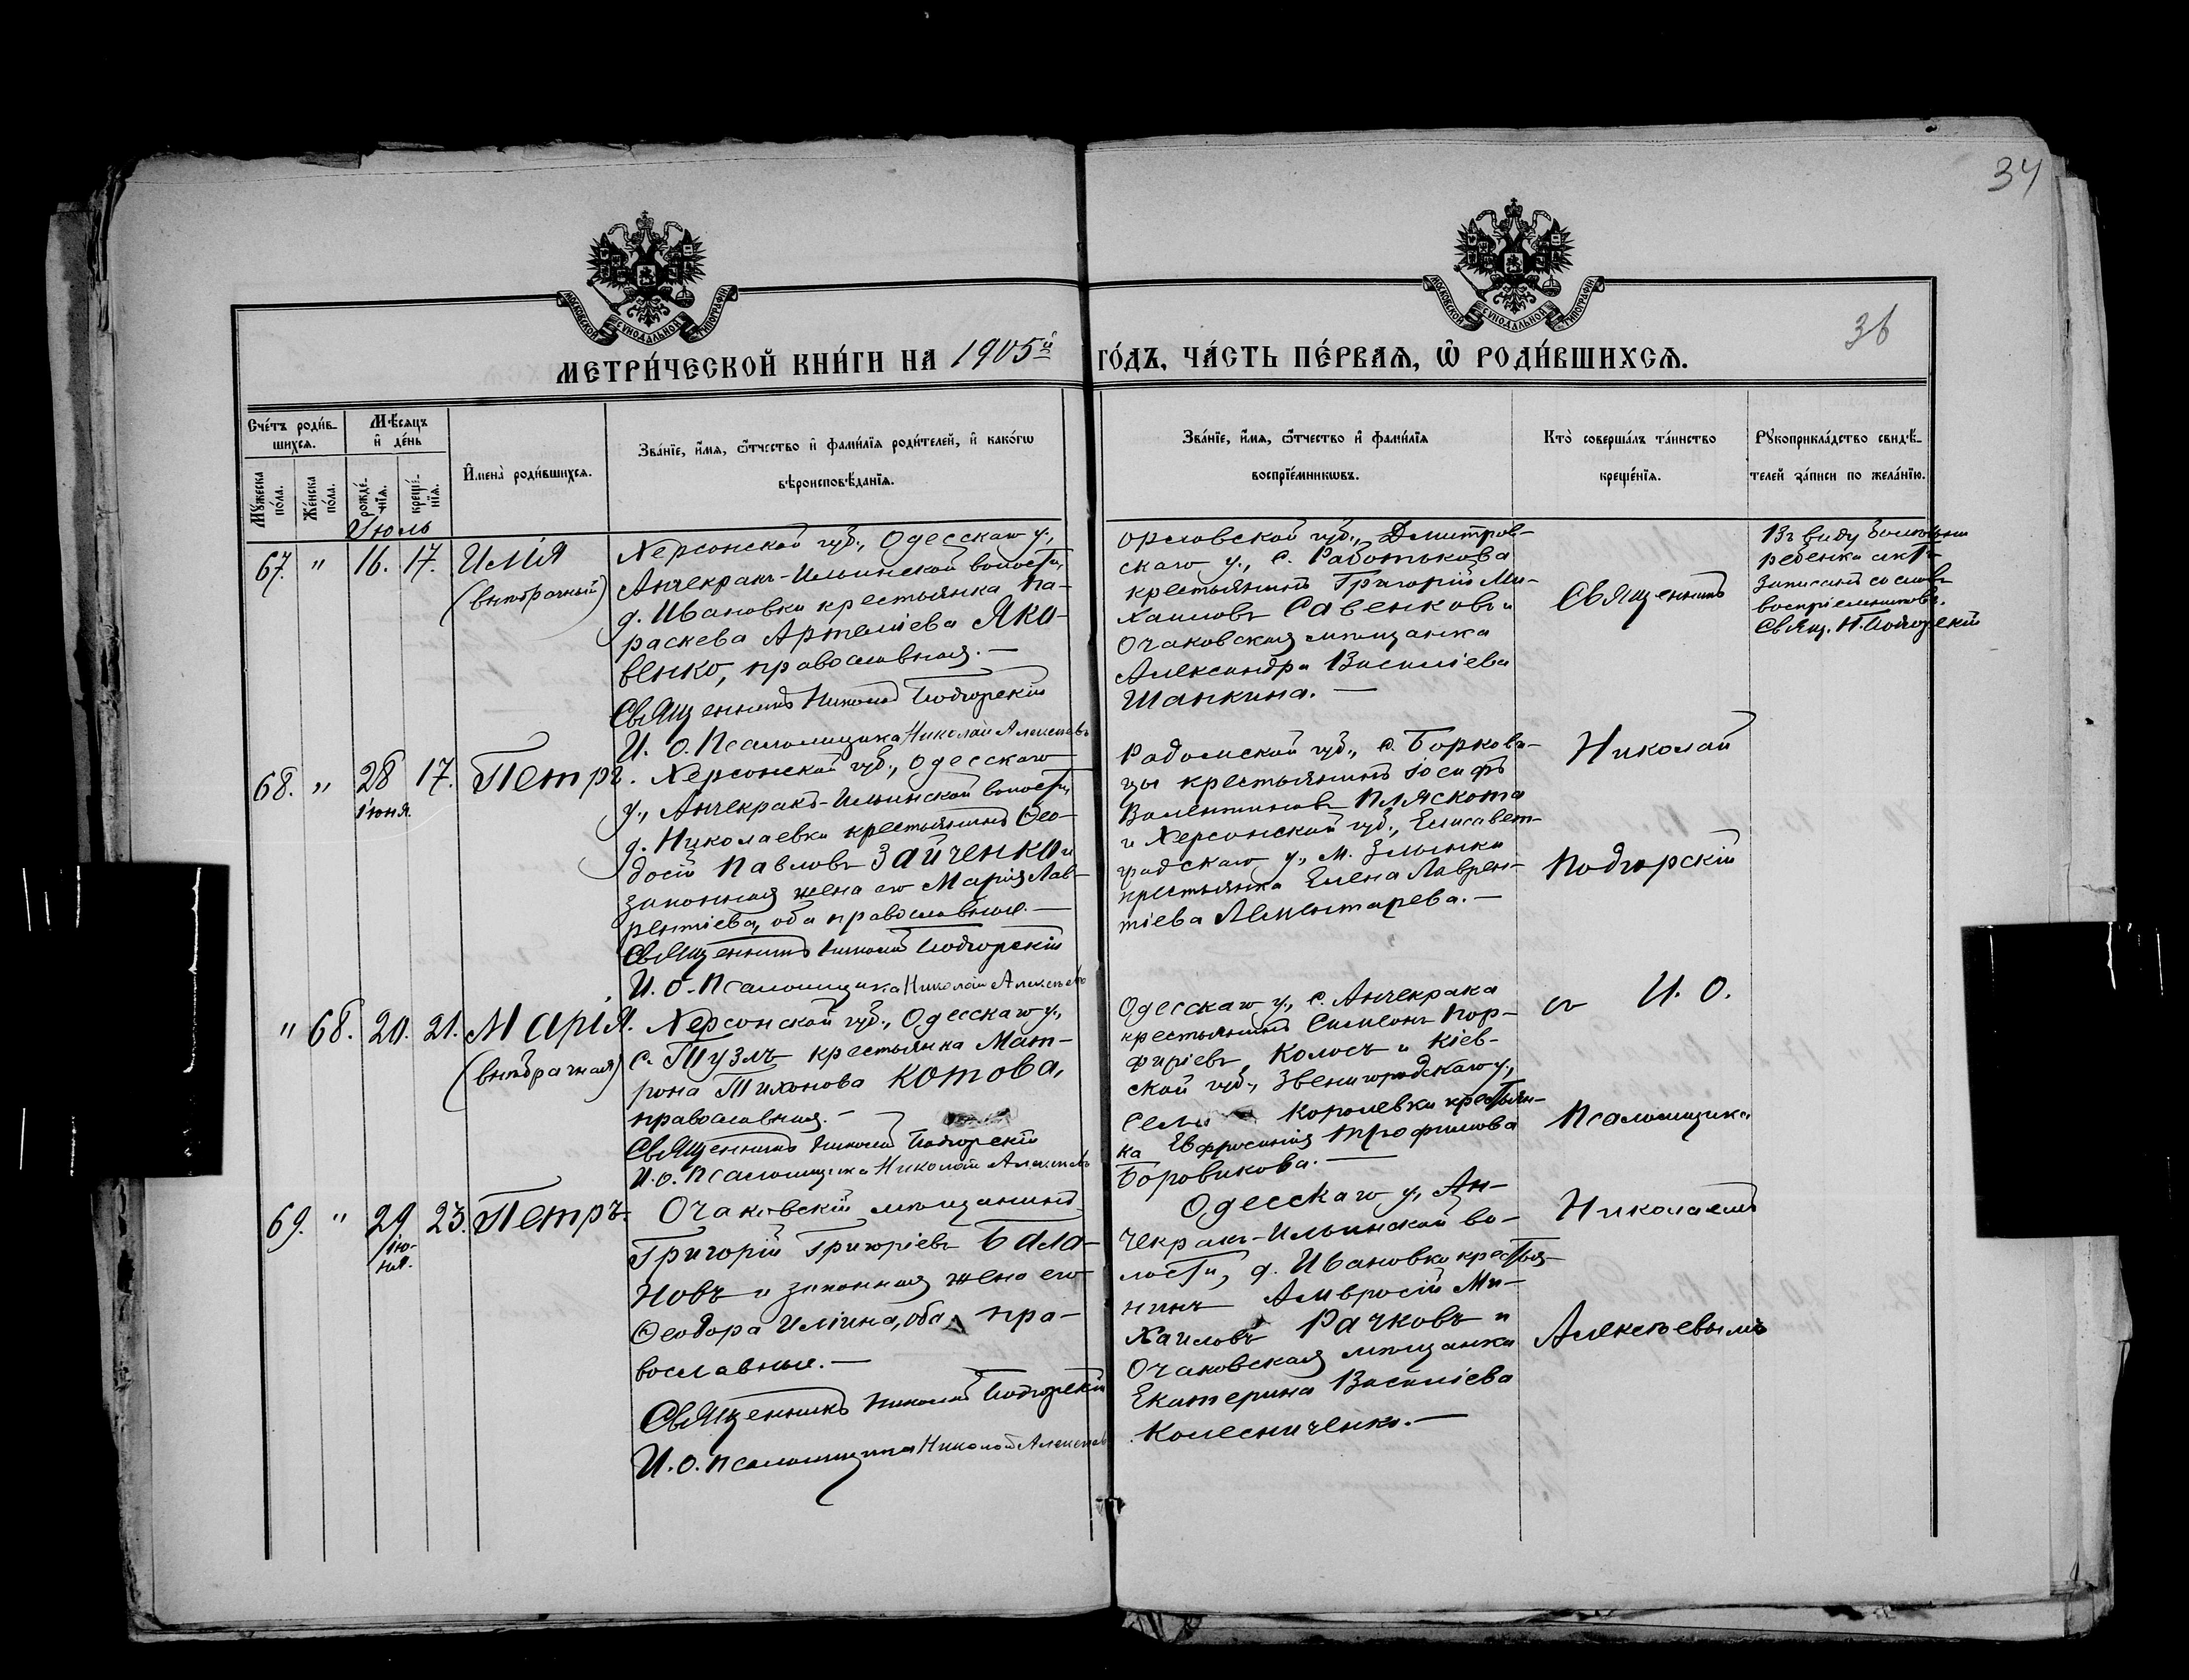 34
36
МОСКОВСКОЙ СѴНОДАЛЬНОЙ ТИПОГРАФІИ
МОСКОВСКОЙ СѴНОДАЛЬНОЙ ТИПОГРАФІИ
МЕТРИ́ЧЕСКОЙ КНИ́ГИ НА 1905й ГО́ДЪ, ЧА́СТЬ ПЕ́РВАѦ, Ѡ҆ РОДИ́ВШИХСѦ.
Сче́тъ роди́в-
шихсѧ.
Мѣ́сѧцъ
и҆ де́нь
Мꙋ́жеска
по́ла.
Же́нска
по́ла.
рожде́-
нїѧ.
креще́-
нїѧ.
И҆мена̀ роди́вшихсѧ.
Зва́нїе, и҆́мѧ, ѻ҆́тчество и҆ фами́лїѧ роди́телей, и҆ како́гѡ
вѣроисповѣ́данїѧ.
Зва́нїе, и҆́мѧ, ѻ҆́тчество и҆ фами́лїѧ
воспрїе́мникѡвъ.
Кто̀ соверша́лъ та́инство
креще́нїѧ.
Рꙋкоприкла́дство свидѣ́-
телей за́писи по жела́нїю.
Июль
67. " 16. 17. Илія
(внѣбрачный)
Херсонской губ., Одесскаго у.,
Анчекрак-Ильинской волости,
д. Ивановки крестьянка Па-
раскева Артеміева Яко-
венко, православная.—
Священникъ Николай Подгорскій
И. О. Псаломщика Николай Алексѣевъ
Орловской губ., Дмитров-
скаго у., с. Работькова
крестьянинъ Григорій Ми-
хаиловъ Савенковъ и
Очаковская мѣщанка
Александра Василіева
Шапкина.—
Священникъ
Въ виду болѣзни
ребенка актъ
записанъ со словъ
воспріемниковъ.
Свящ. Н. Подгорскій
68. " 28 17. Петръ.
Іюня.
Херсонской губ., Одесскаго
у., Анчекракъ-Ильинской волости,
д. Николаевки крестьянинъ Ѳео-
досій Павловъ Зайченко и
законная жена его Марія Лав-
рентіева, оба православные.—
Священникъ Николай Подгорскій
И. О. Псаломщика Николай Алексѣевъ
Радомской губ., с. Боркови-
цы крестьянинъ Іосифъ
Валентиновъ Пляскота
и Херсонской губ., Елисавет-
градскаго у., м. Злынки
крестьянка Елена Лаврен-
тіева Лементарева.—
Николай
Подгорскій
" 68. 20. 21. Марія.
(внѣбрачная)
Херсонской губ., Одесскаго у.,
с. Тузлъ крестьянка Мат-
рона Тихонова Котова,
православная.—
Священникъ Николай Подгорскій
И. о. Псаломщика Николай Алексѣевъ
Одесскаго у., с. Анчекрака
крестьянинъ Симеонъ Пор-
фиріевъ Колосъ и Кіев-
ской губ., Звенигородскаго у.,
села Королевки крестьян-
ка Евфросинія Трофимова
Боровикова.—
съ И. О.
Псаломщика
69. " 29 23. Петръ.
Ію-
ня.
Очаковскій мѣщанинъ
Григорій Григоріевъ Бала-
новъ и законная жена его
Ѳеодора Иліина, оба пра-
вославные.—
Священникъ Николай Подгорскій
И. О. Псаломщика Николай Алексѣевъ
Одесскаго у., Ан-
чекракъ-Ильинской во-
лости, д. Ивановки крестья-
нинъ Амвросій Ми-
хаиловъ Рачковъ и
Очаковская мѣщанка
Екатерина Василіева
Колесниченко.—
Николаемъ
Алексѣевымъ